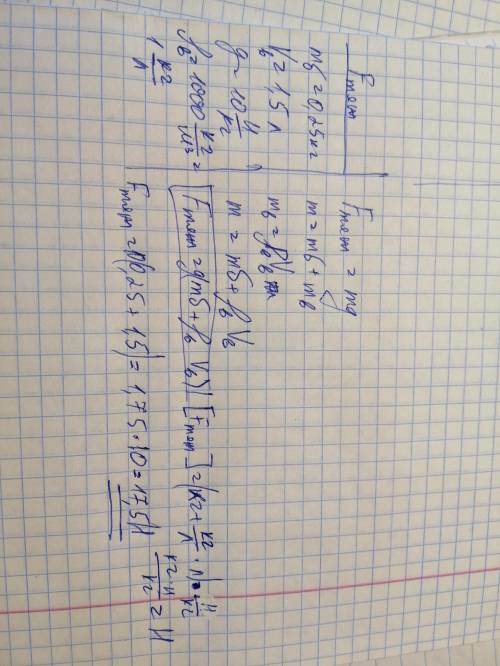 Fтяж
mб = 0,25 кг
Vв = 1,5 л
g = 10 Н/кг
ρв = 1000 кг/м³ =
1 кг/л
Fтяж = mg
m = mб + mв
mв = ρвVв
m = mб + ρвVв
Fтяж = g(mб + ρв Vв) [Fтяж] = (кг + кг/л · л) · Н/кг
Fтяж = 10(0,25 + 1,5) = 1,75 · 10 = 17,5 Н
кг · Н/кг = Н